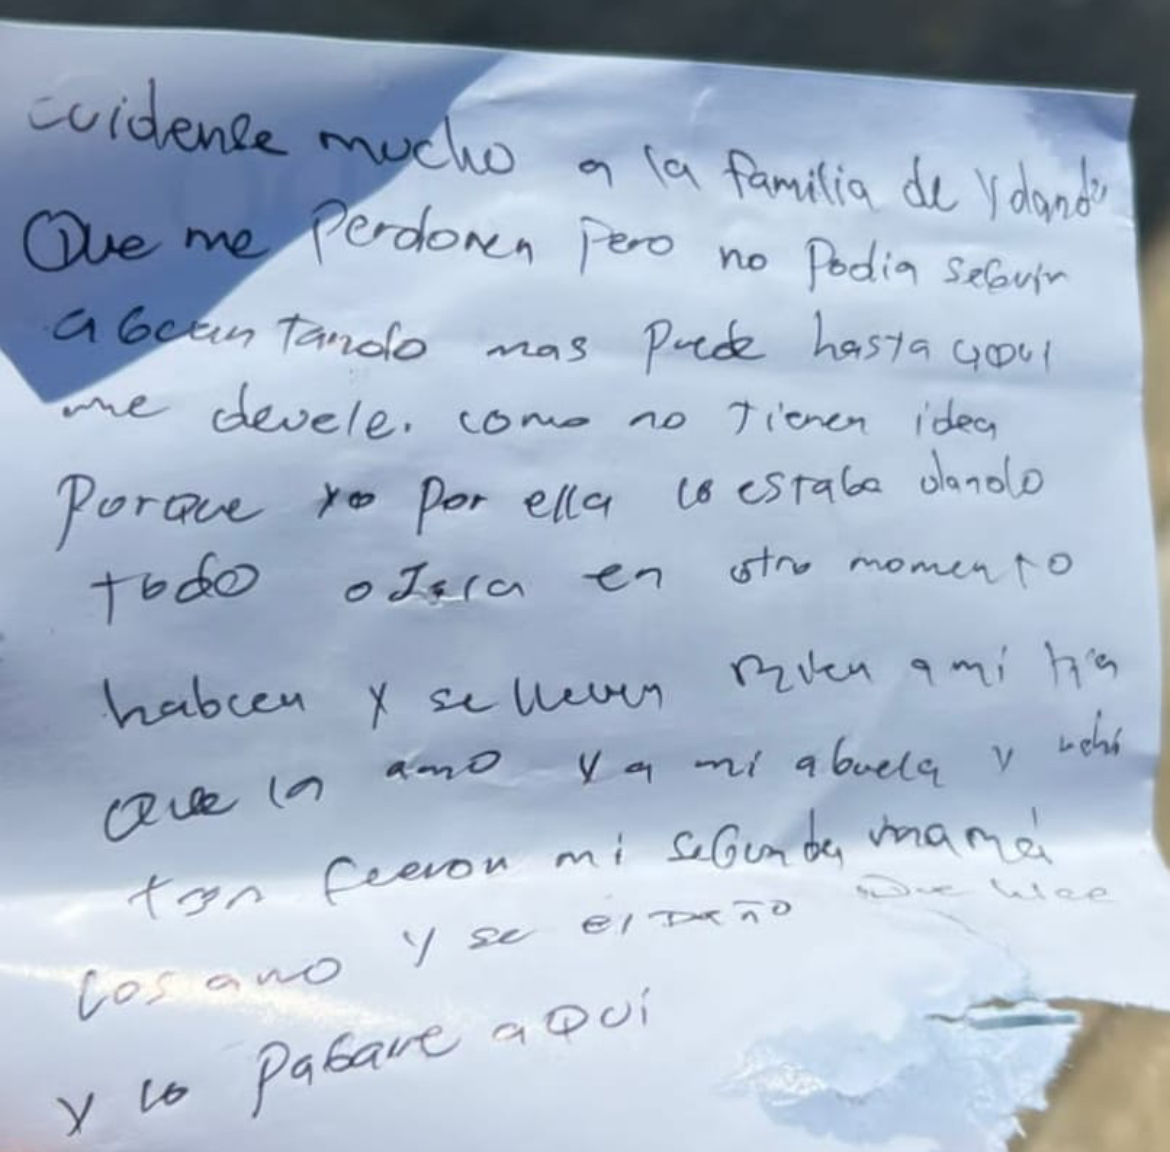 cuidense mucho a la familia de Ydand
Que me Perdonen Pero no Podia seguir
aguantando mas Puede hasta aqui
me devele. como no Tienen idea
Porque yo Por ella lo estaba dando
todo ojala en otro momento
hablen y se lleven a mi tia
Que la amo y a mi abuela y
fueron mi segunda mamá
los amo y se el Daño Que hice
y lo Pagare aQui